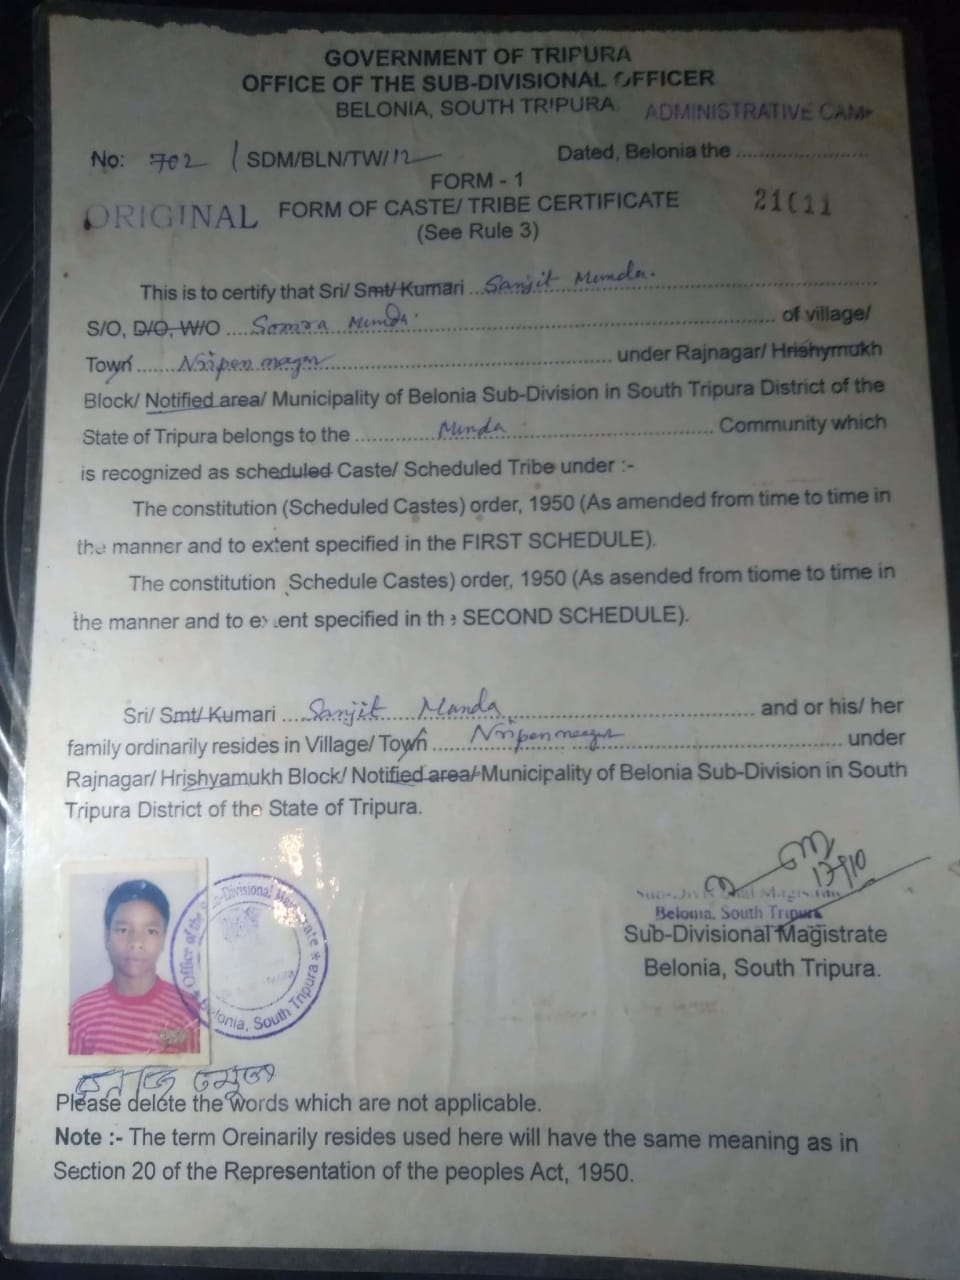 GOVERNMENT OF TRIPURA
OFFICE OF THE SUB-DIVISIONAL OFFICER
BELONIA, SOUTH TRIPURA.
ADMINISTRATIVE CAMP
No: 702 / SDM/BLN/TW/12
Dated, Belonia the ......................
FORM - 1
ORIGINAL FORM OF CASTE/ TRIBE CERTIFICATE
(See Rule 3)
This is to certify that Sri/ Smt/ Kumari ..Sanjit Munda.
S/O, D/O, W/O ....Somra Munda........ of village/
Town......Nripen nagar........ under Rajnagar/ Hrishymukh
Block/ Notified area/ Municipality of Belonia Sub-Division in South Tripura District of the
State of Tripura belongs to the ........Munda........ Community which
is recognized as scheduled Caste/ Scheduled Tribe under :-
The constitution (Scheduled Castes) order, 1950 (As amended from time to time in
the manner and to extent specified in the FIRST SCHEDULE).
The constitution (Schedule Castes) order, 1950 (As asended from tiome to time in
the manner and to extent specified in the SECOND SCHEDULE).
Sri/ Smt/ Kumari ....Sanjit Munda........ and or his/ her
family ordinarily resides in Village/ Town ......Nripen nagar........ under
Rajnagar/ Hrishyamukh Block/ Notified area/ Municipality of Belonia Sub-Division in South
Tripura District of the State of Tripura.
Office of the Sub-Divisional Magistrate * Belonia, South Tripura *
Sub-Divisional Magistrate
Belonia, South Tripura
Sub-Divisional Magistrate
Belonia, South Tripura.
Please delete the words which are not applicable.
Note :- The term Oreinarily resides used here will have the same meaning as in
Section 20 of the Representation of the peoples Act, 1950.